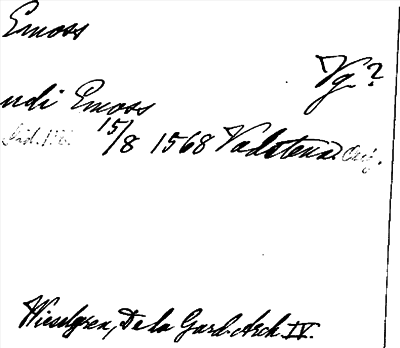 Emoss
Vg?
udi Emoss
15/8 1568 Vadstena Orig.
Wieselgren, De la Gard. Arch IV.